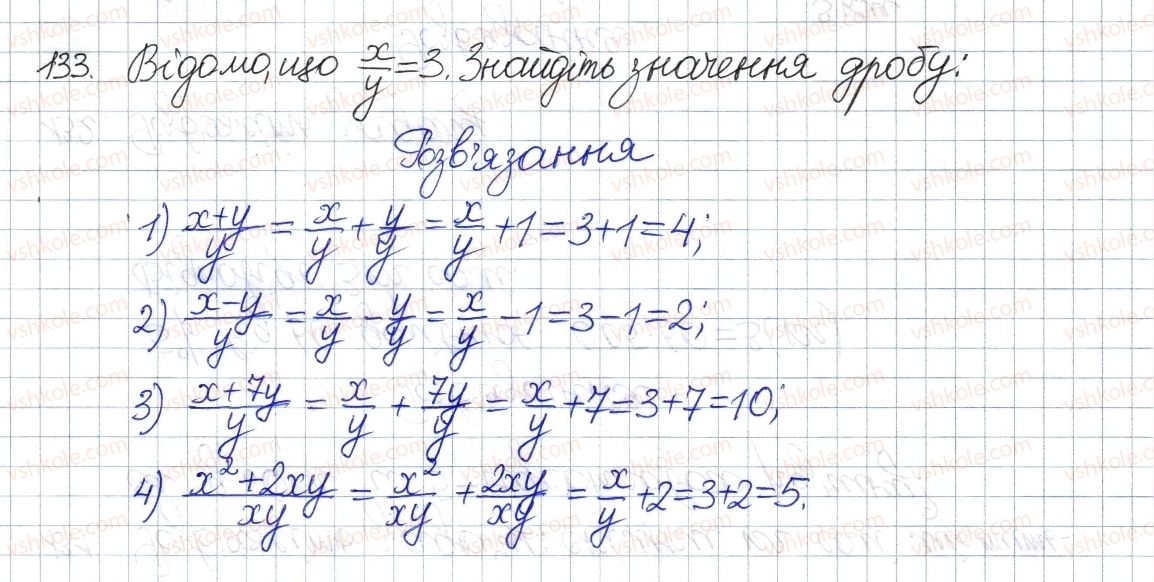 133. Відомо, що x/y = 3. Знайдіть значення дробу:
Розв'язання
1) (x+y)/y = x/y + y/y = x/y + 1 = 3 + 1 = 4;
2) (x-y)/y = x/y - y/y = x/y - 1 = 3 - 1 = 2;
3) (x+7y)/y = x/y + 7y/y = x/y + 7 = 3 + 7 = 10;
4) (x²+2xy)/xy = x²/xy + 2xy/xy = x/y + 2 = 3 + 2 = 5.
vshkole.com